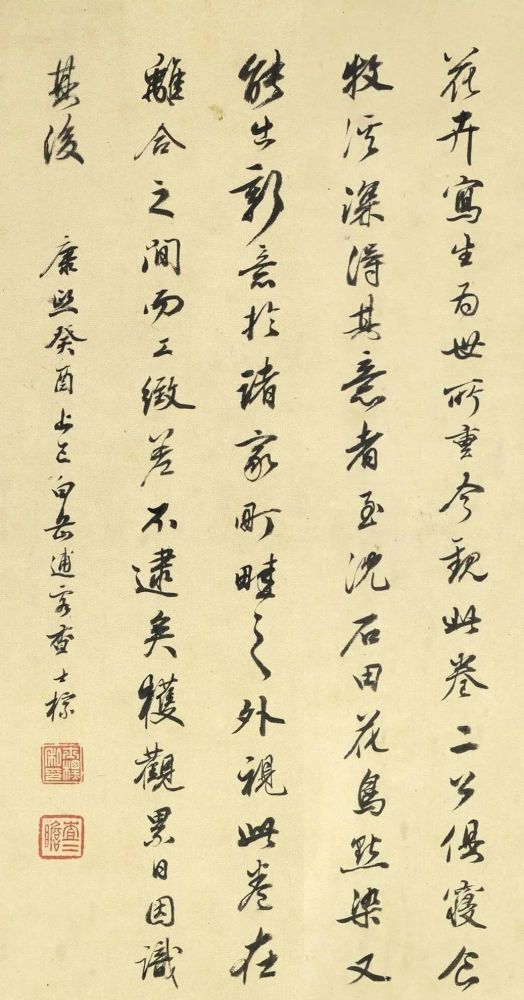 花卉寫生為世所重今觀此卷二公俱寢食
牧溪深得其意者至沈石田花鳥點染又
能出新意於諸家町畦之外視此卷在
離合之間而工緻差不逮矣獲觀累日因識
其後
康熙癸酉上巳白岳逋客查士標
查二瞻